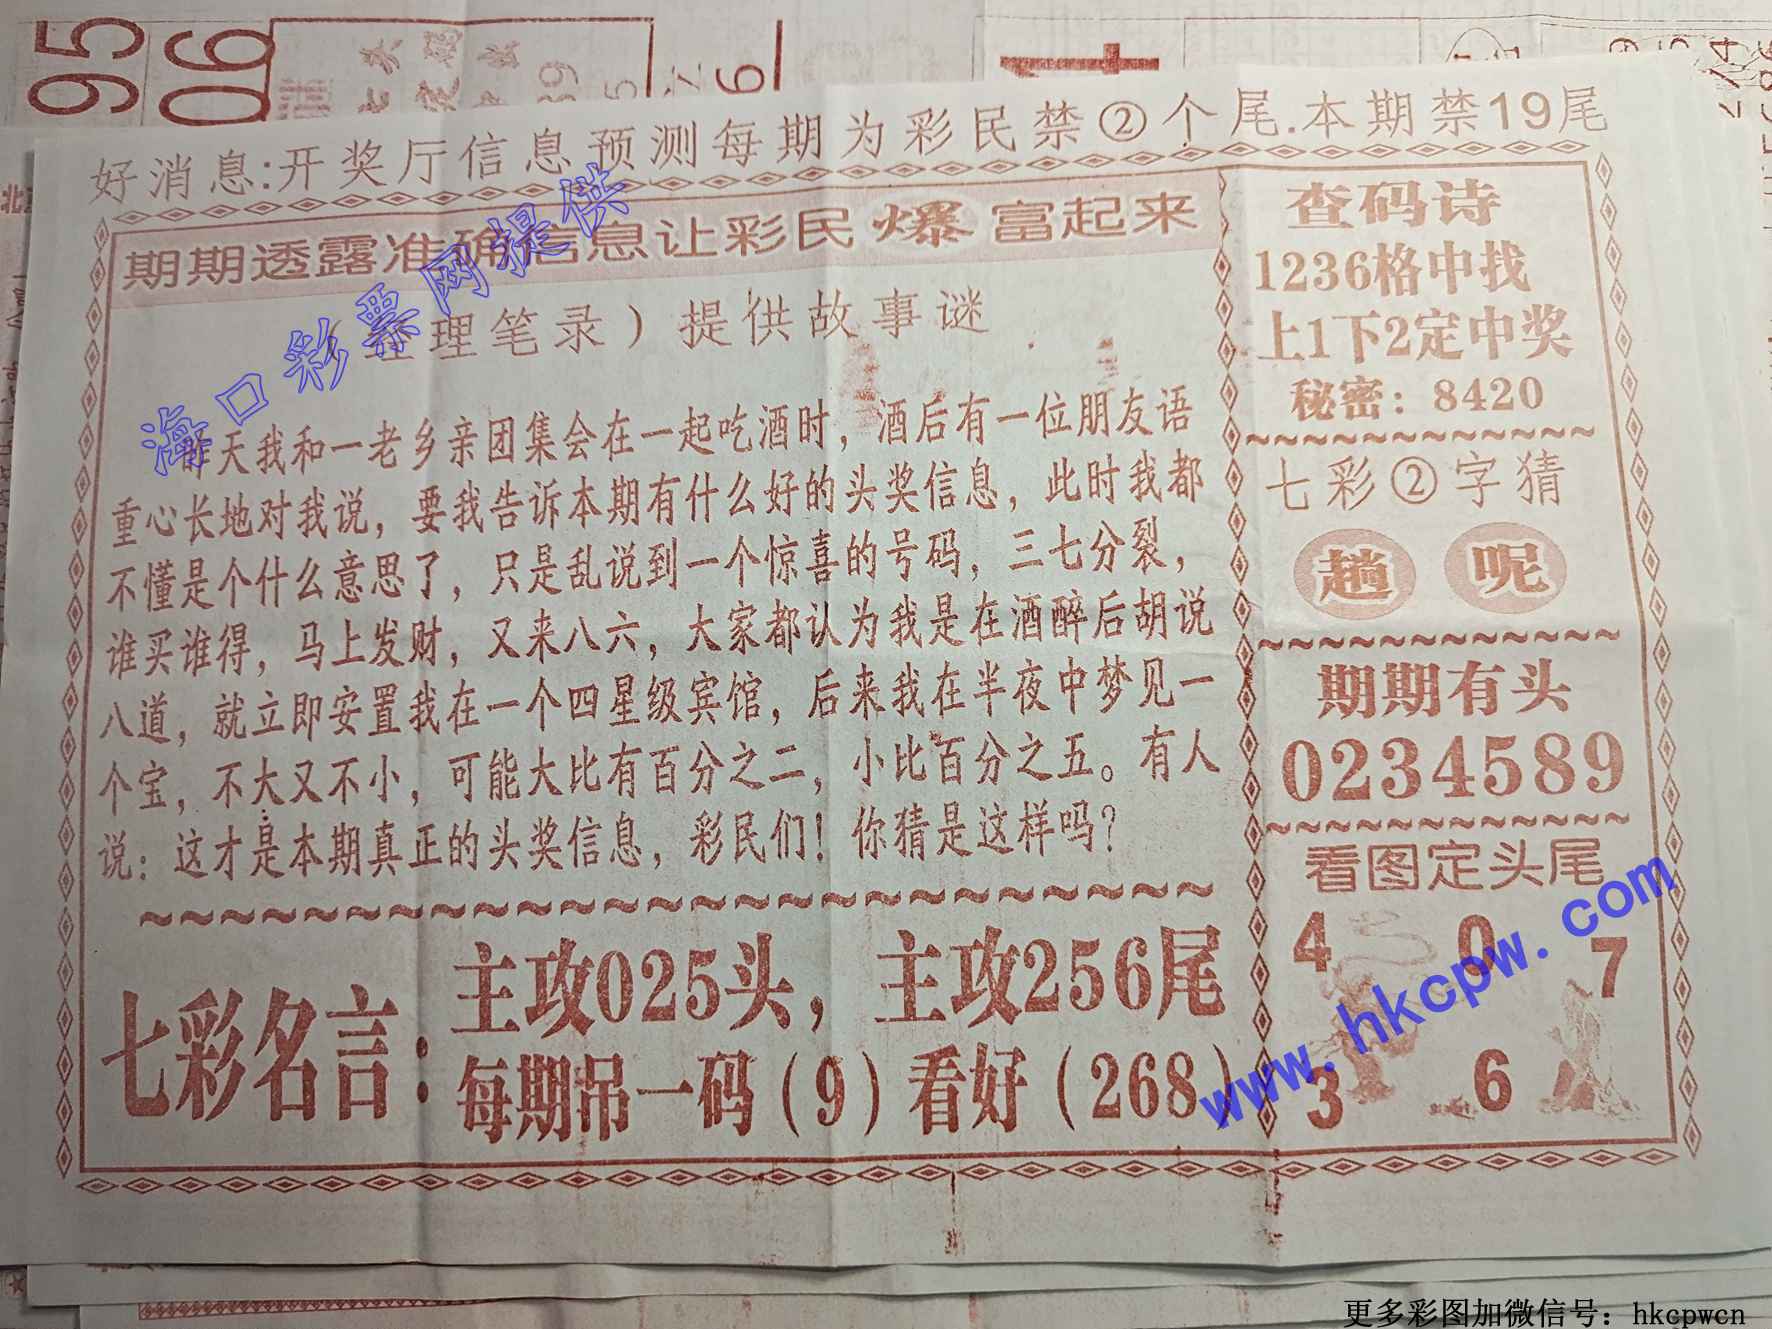 好消息:开奖厅信息预测每期为彩民禁②个尾.本期禁19尾
期期透露准确信息让彩民爆富起来
理笔录）提供故事谜
昨天我和一老乡亲团集会在一起吃酒时，酒后有一位朋友语
重心长地对我说，要我告诉本期有什么好的头奖信息，此时我都
不懂是个什么意思了，只是乱说到一个惊喜的号码，三七分裂，
谁买谁得，马上发财，又来八六，大家都认为我是在酒醉后胡说
八道，就立即安置我在一个四星级宾馆，后来我在半夜中梦见一
个宝，不大又不小，可能大比有百分之二，小比百分之五。有人
说：这才是本期真正的头奖信息，彩民们！你猜是这样吗？
七彩名言：
主攻025头，主攻256尾
每期吊一码（9）看好（268）
查码诗
1236格中找
上1下2定中奖
秘密：8420
七彩②字猜
趟 呢
期期有头
0234589
看图定头尾
4 0 7
3 6
海口彩票网提供
www.hkcpw.com
更多彩图加微信号：hkcpwcn
95
06